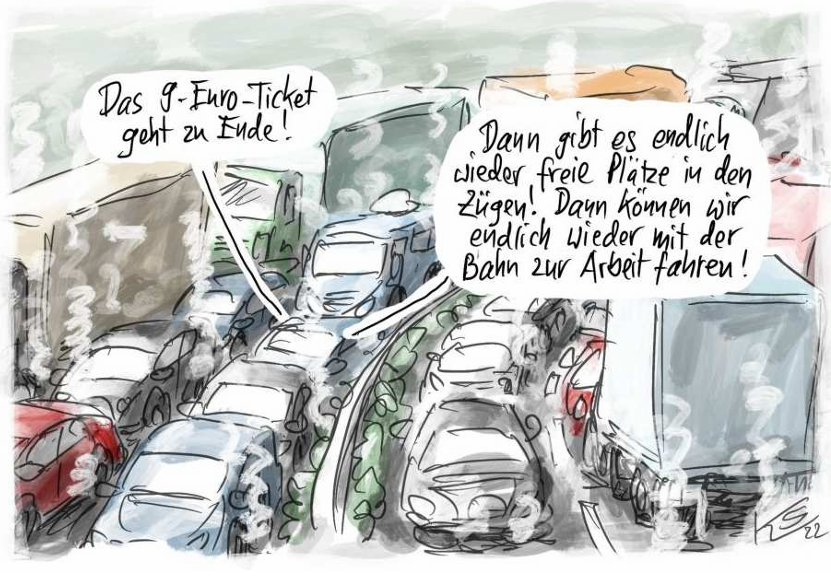 Das 9-Euro-Ticket
geht zu Ende!
Dann gibt es endlich
wieder freie Plätze in den
Zügen! Dann können wir
endlich wieder mit der
Bahn zur Arbeit fahren!